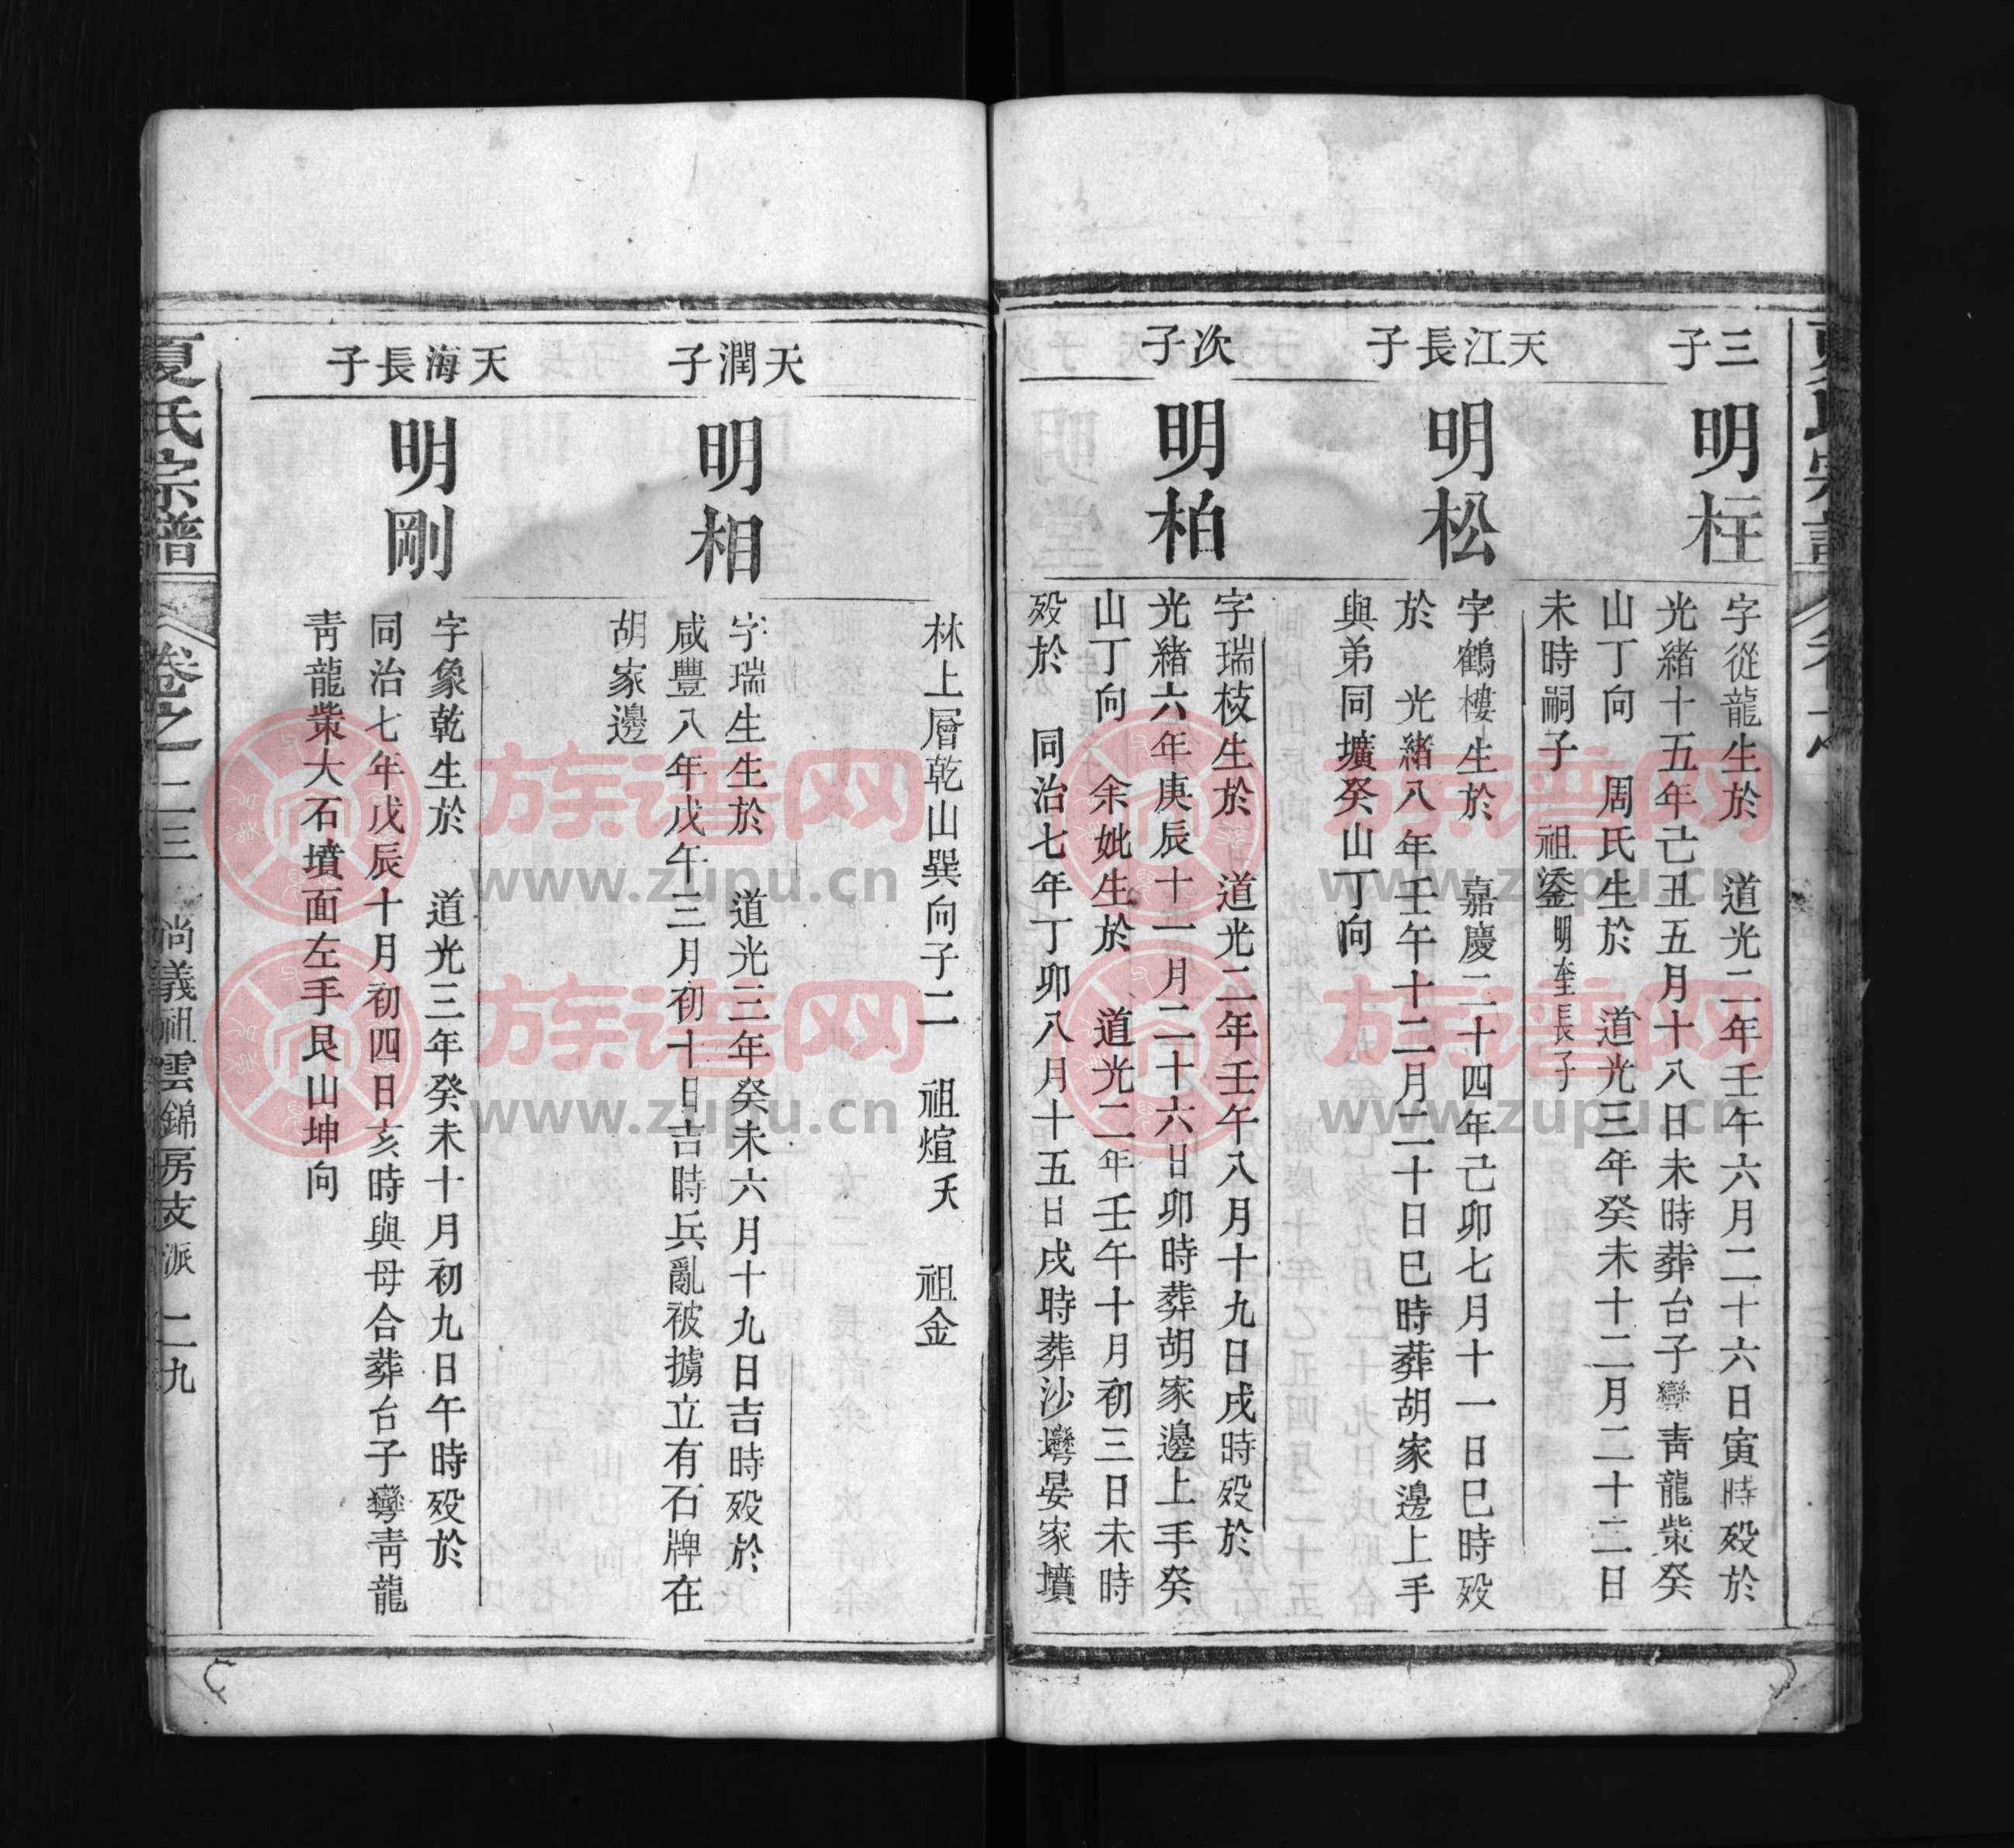 三子
明柱
字從龍生於 道光二年壬午六月二十六日寅時歿於
光緒十五年己丑五月十八日未時葬台子灣青龍柴癸
山丁向 周氏生於 道光三年癸未十二月二十二日
未時嗣子 祖鋈明奎長子
天江長子
明松
字鶴樓生於 嘉慶二十四年己卯七月十一日巳時歿
於 光緒八年壬午十二月二十日巳時葬胡家邊上手
與弟同壙癸山丁向
次子
明柏
字瑞枝生於 道光二年壬午八月十九日戌時歿於
光緒六年庚辰十一月二十六日卯時葬胡家邊上手癸
山丁向 余妣生於 道光二年壬午十月初三日未時
歿於 同治七年丁卯八月十五日戌時葬沙灣晏家墳
林上層乾山巽向子二 祖煊夭 祖金
天潤子
明相
字瑞生生於 道光三年癸未六月十九日吉時歿於
咸豐八年戊午三月初十日吉時兵亂被擄立有石牌在
胡家邊
天海長子
明剛
字象乾生於 道光三年癸未十月初九日午時歿於
同治七年戊辰十月初四日亥時與母合葬台子灣青龍
青龍柴大石墳面左手艮山坤向
夏氏宗譜 卷之二三 尚義祖雲錦房支派 二九
族谱网
www.zupu.cn
族谱网
www.zupu.cn
族谱网
www.zupu.cn
族谱网
www.zupu.cn